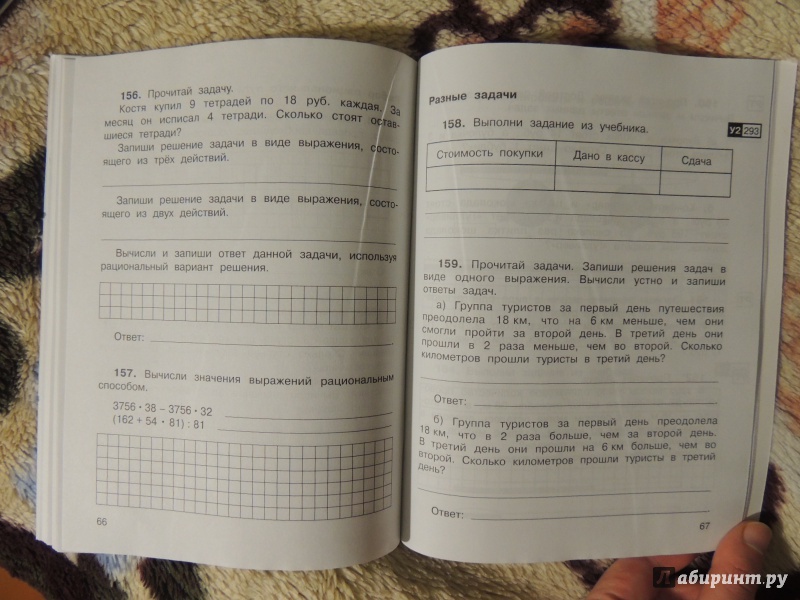 156. Прочитай задачу.
Костя купил 9 тетрадей по 18 руб. каждая. За
месяц он исписал 4 тетради. Сколько стоят остав-
шиеся тетради?
Запиши решение задачи в виде выражения, состо-
ящего из трёх действий.
Запиши решение задачи в виде выражения, состо-
ящего из двух действий.
Вычисли и запиши ответ данной задачи, используя
рациональный вариант решения.
Ответ:
157. Вычисли значения выражений рациональным
способом.
3756 • 38 – 3756 • 32
(162 + 54 • 81) : 81
66
Разные задачи
158. Выполни задание из учебника.
У2 293
Стоимость покупки Дано в кассу Сдача
159. Прочитай задачи. Запиши решения задач в
виде одного выражения. Вычисли устно и запиши
ответы задач.
а) Группа туристов за первый день путешествия
преодолела 18 км, что на 6 км меньше, чем они
смогли пройти за второй день. В третий день они
прошли в 2 раза меньше, чем во второй. Сколько
километров прошли туристы в третий день?
Ответ:
б) Группа туристов за первый день преодолела
18 км, что в 2 раза больше, чем за второй день.
В третий день они прошли на 6 км больше, чем во
второй. Сколько километров прошли туристы в третий
день?
Ответ:
67
Лабиринт.ру